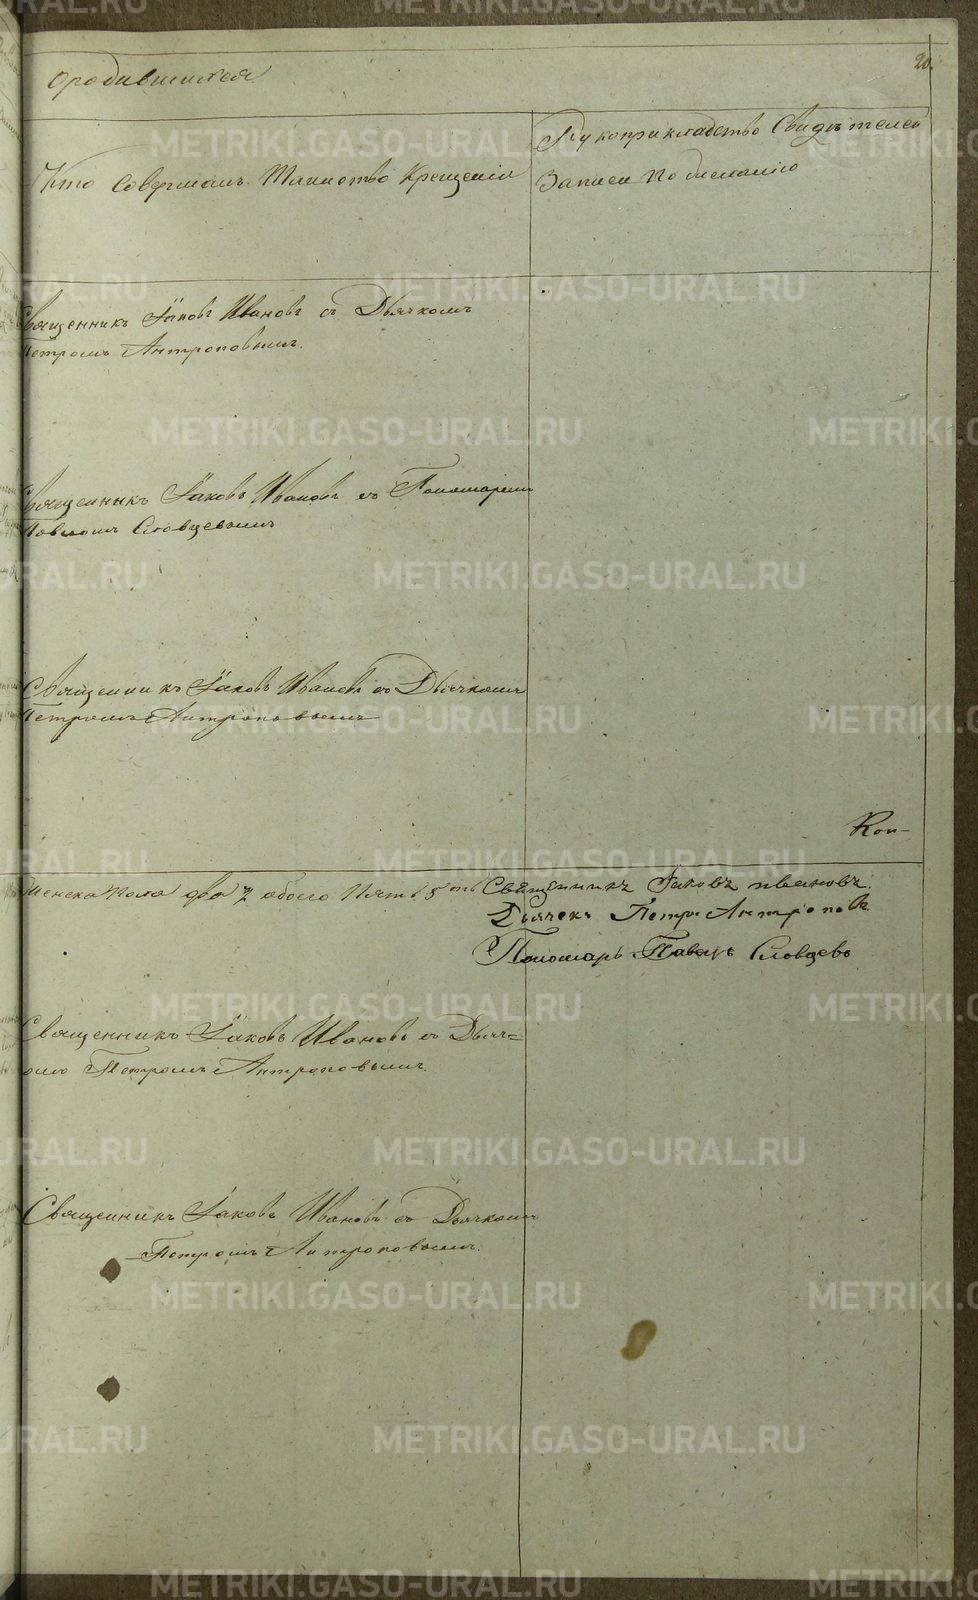 о родившихся
20.
Кто Совершалъ Таинство Крещенія
Рукоприкладство Свидѣтелей
Записи По желанію
Священникъ Іаковъ Ивановъ съ Дьячкомъ
Петромъ Антроповымъ.
Священникъ Іаковъ Ивановъ съ Пономаремъ
Павломъ Словцевымъ
Священникъ Іаковъ Ивановъ съ Дьячкомъ
Петромъ Антроповымъ
Кон-
женска пола два 2 обоего Пять 5ть
Священникъ Іаковъ Ивановъ.
Дьячекъ Петръ Антроповъ.
Пономарь Павелъ Словцевъ
Священникъ Іаковъ Ивановъ съ Дьяч=
комъ Петромъ Антроповымъ.
Священникъ Іаковъ Ивановъ съ Дьячкомъ
Петромъ Антроповымъ.
METRIKI.GASO-URAL.RU